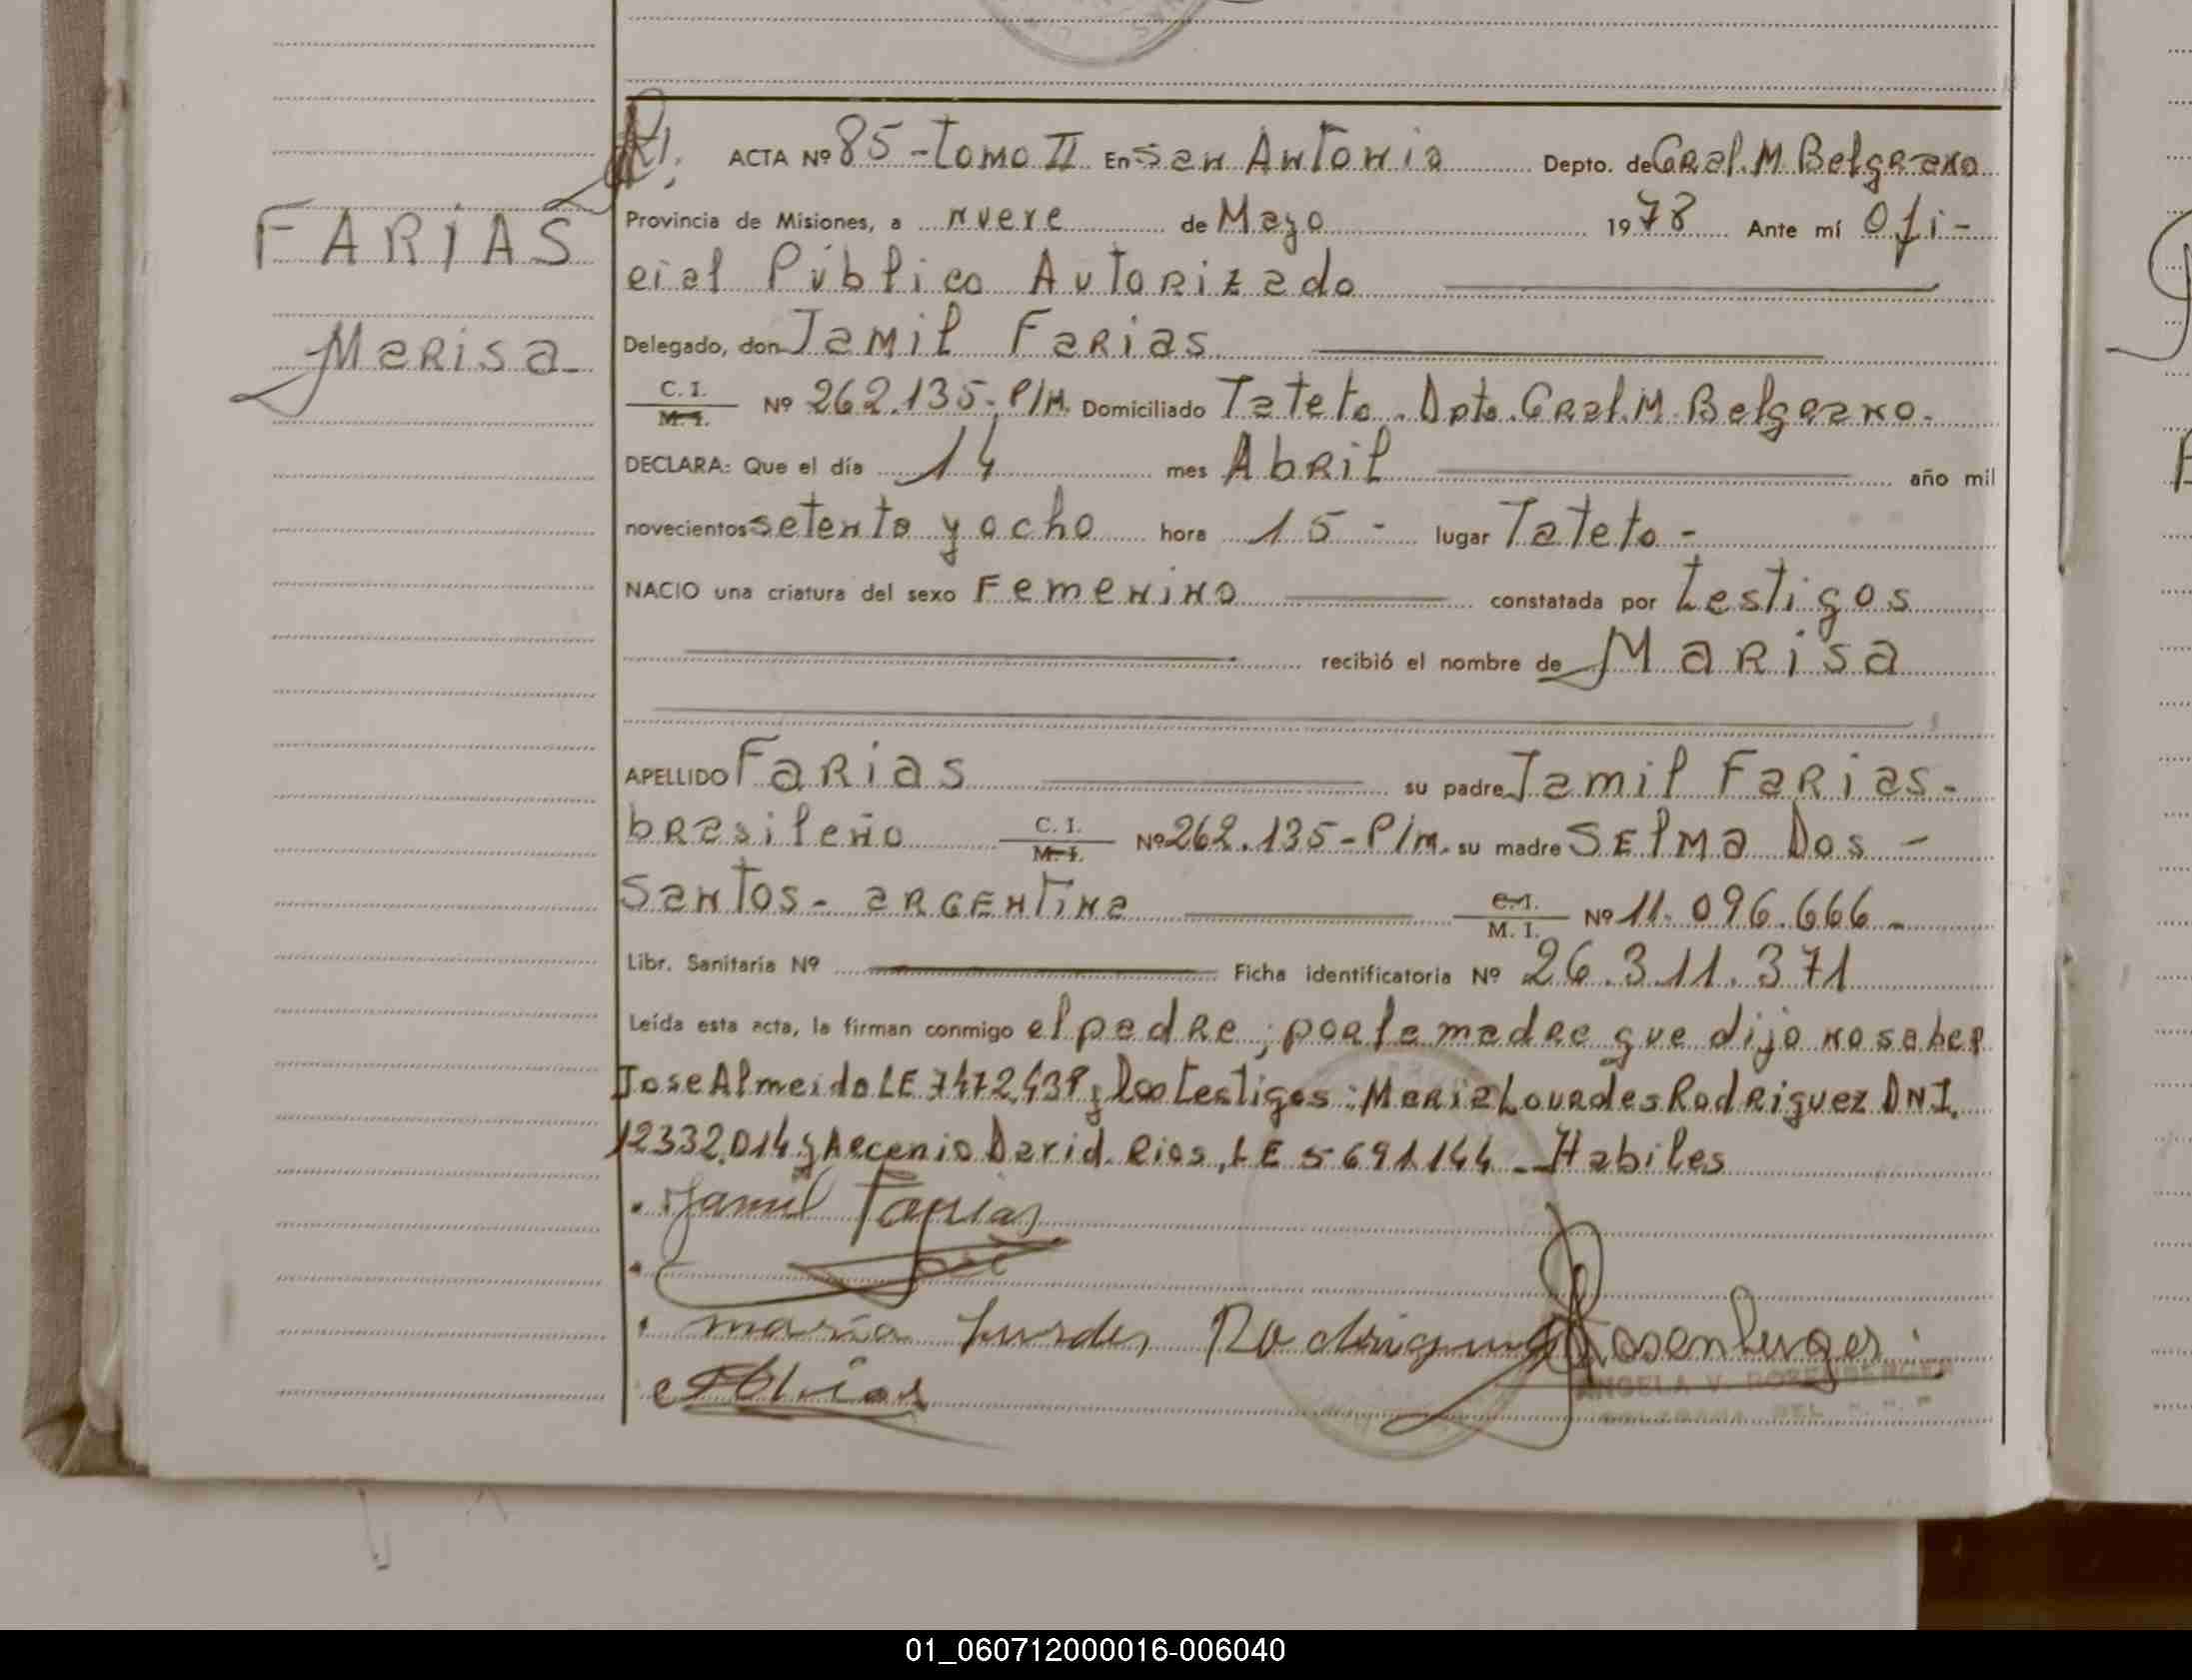 FARIAS
Marisa-
ACTA Nº 85-Tomo II En San Antonio Depto. de Gral. M. Belgrano
Provincia de Misiones, a nueve de Mayo 1978 Ante mí Ofi-
cial Público Autorizado
Delegado, don Jamil Farias
C. I.
M. I. Nº 262.135-P/M. Domiciliado Tateto. Dpto. Gral. M. Belgrano.
DECLARA: Que el día 14 mes Abril año mil
novecientos setenta y ocho hora 15- lugar Tateto-
NACIO una criatura del sexo Femenino constatada por testigos
recibió el nombre de Marisa
APELLIDO Farias su padre Jamil Farias-
brasileño C. I.
M. I. Nº 262.135-P/m. su madre Selma Dos-
Santos- argentina C. I.
M. I. Nº 11.096.666-
Libr. Sanitaria Nº Ficha identificatoria Nº 26.311.371
Leída esta acta, la firman conmigo el padre; por la madre que dijo no saber
Jose Almeida LE 7472.438 y los testigos: Maria Lourdes Rodriguez DNI.
12332.014 y Arcenio David Rios, LE 5691144- Habiles
Jamil Farias
maria Lurdes Rodriguez Rosenberger
ANGELA V. ROSENBERGER
01_060712000016-006040